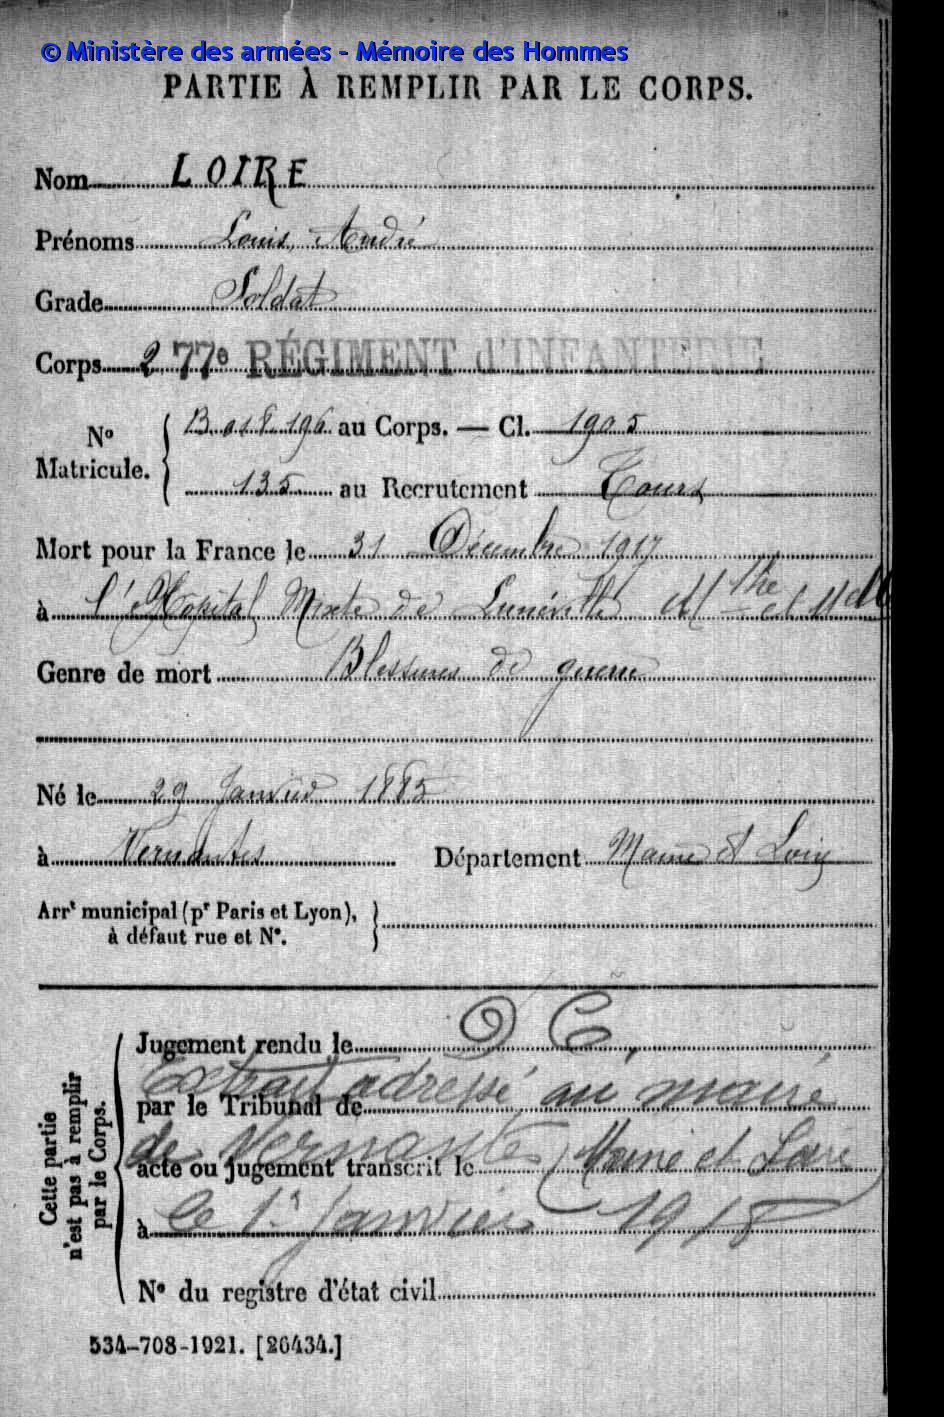 © Ministère des armées - Mémoire des Hommes
PARTIE À REMPLIR PAR LE CORPS.
Nom LOIRE
Prénoms Louis, André
Grade Soldat
Corps 277e RÉGIMENT d'INFANTERIE
No Matricule. 196 au Corps. — Cl. 1905
135 au Recrutement Tours
Mort pour la France le 31 Décembre 1917
à l'Hôpital Mixte de Lunéville Mthe et Mlle
Genre de mort Blessures de guerre
Né le 29 Janvier 1885
à Vernantes Département Maine et Loire
Arrt municipal (pr Paris et Lyon),
à défaut rue et N°.
Cette partie
n'est pas à remplir
par le Corps.
Jugement rendu le D C,
Extrait adressé au maire
par le Tribunal de
de Vernantes (Maine et Loire
acte ou jugement transcrit le
à le 1r Janvier 1918
N° du registre d'état civil
534-708-1921. [26434.]